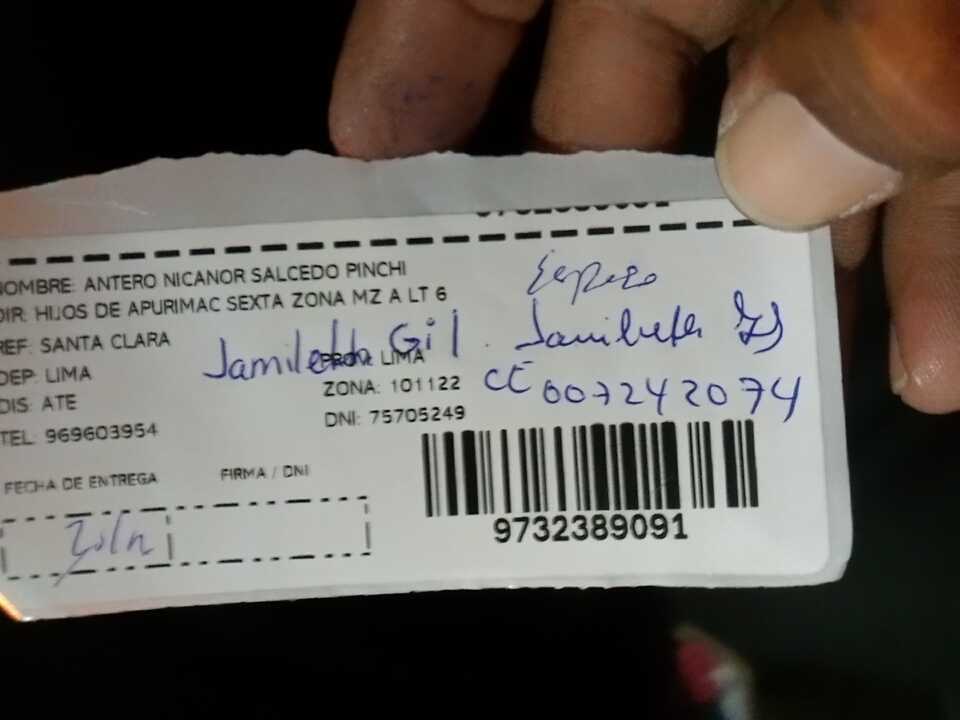 NOMBRE: ANTERO NICANOR SALCEDO PINCHI
DIR: HIJOS DE APURIMAC SEXTA ZONA MZ A LT 6
REF: SANTA CLARA
DEP: LIMA
PROV: LIMA
DIS: ATE
ZONA: 101122
TEL: 969603954
DNI: 75705249
Jamileth Gil
CE 007242074
FECHA DE ENTREGA
FIRMA / DNI
9732389091